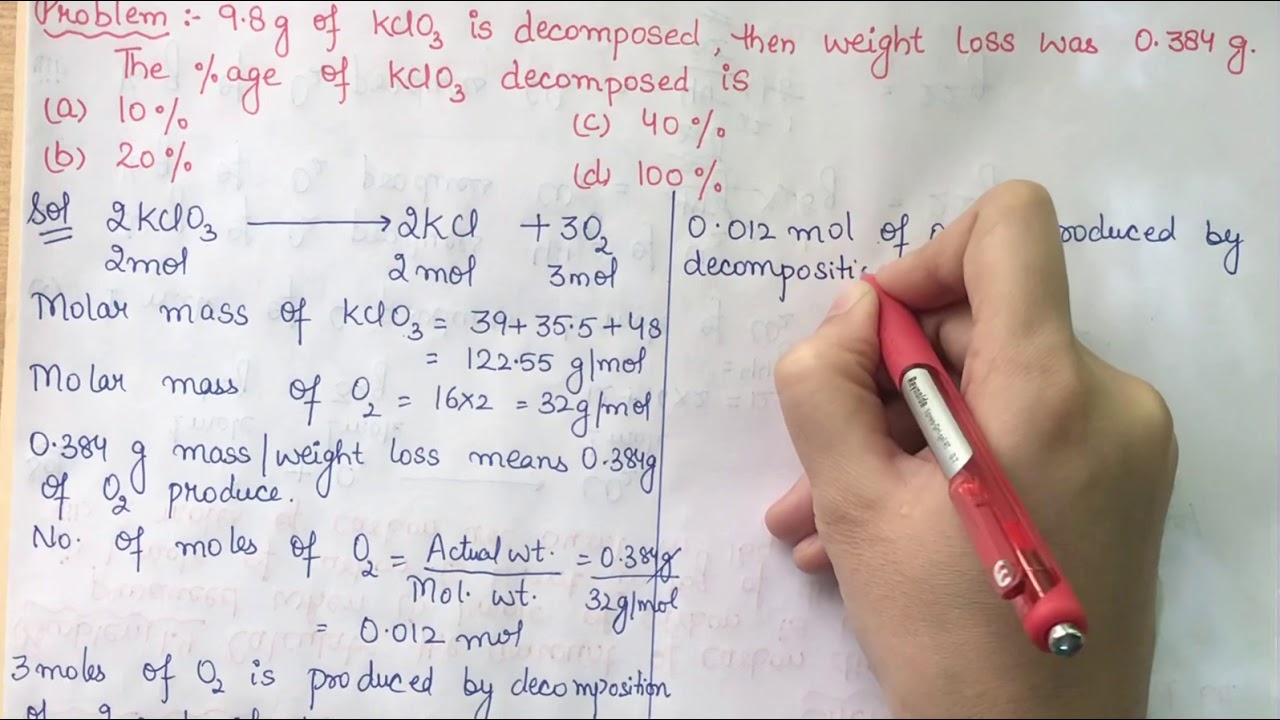 Problem :- 9.8g of KClO3 is decomposed, then weight loss was 0.384 g.
The %age of KClO3 decomposed is
(a) 10%
(b) 20%
(c) 40%
(d) 100%
Sol 2KClO3 → 2KCl + 3O2
2mol 2mol 3mol
Molar mass of KClO3 = 39+35.5+48
= 122.55 g/mol
Molar mass of O2 = 16×2 = 32g/mol
0.384 g mass/weight loss means 0.384g
of O2 produce.
No. of moles of O2 = Actual wt. / Mol. wt. = 0.384g / 32g/mol
= 0.012 mol
3 moles of O2 is produced by decomposition
of
0.012 mol of produced by
decompositi
Reynolds